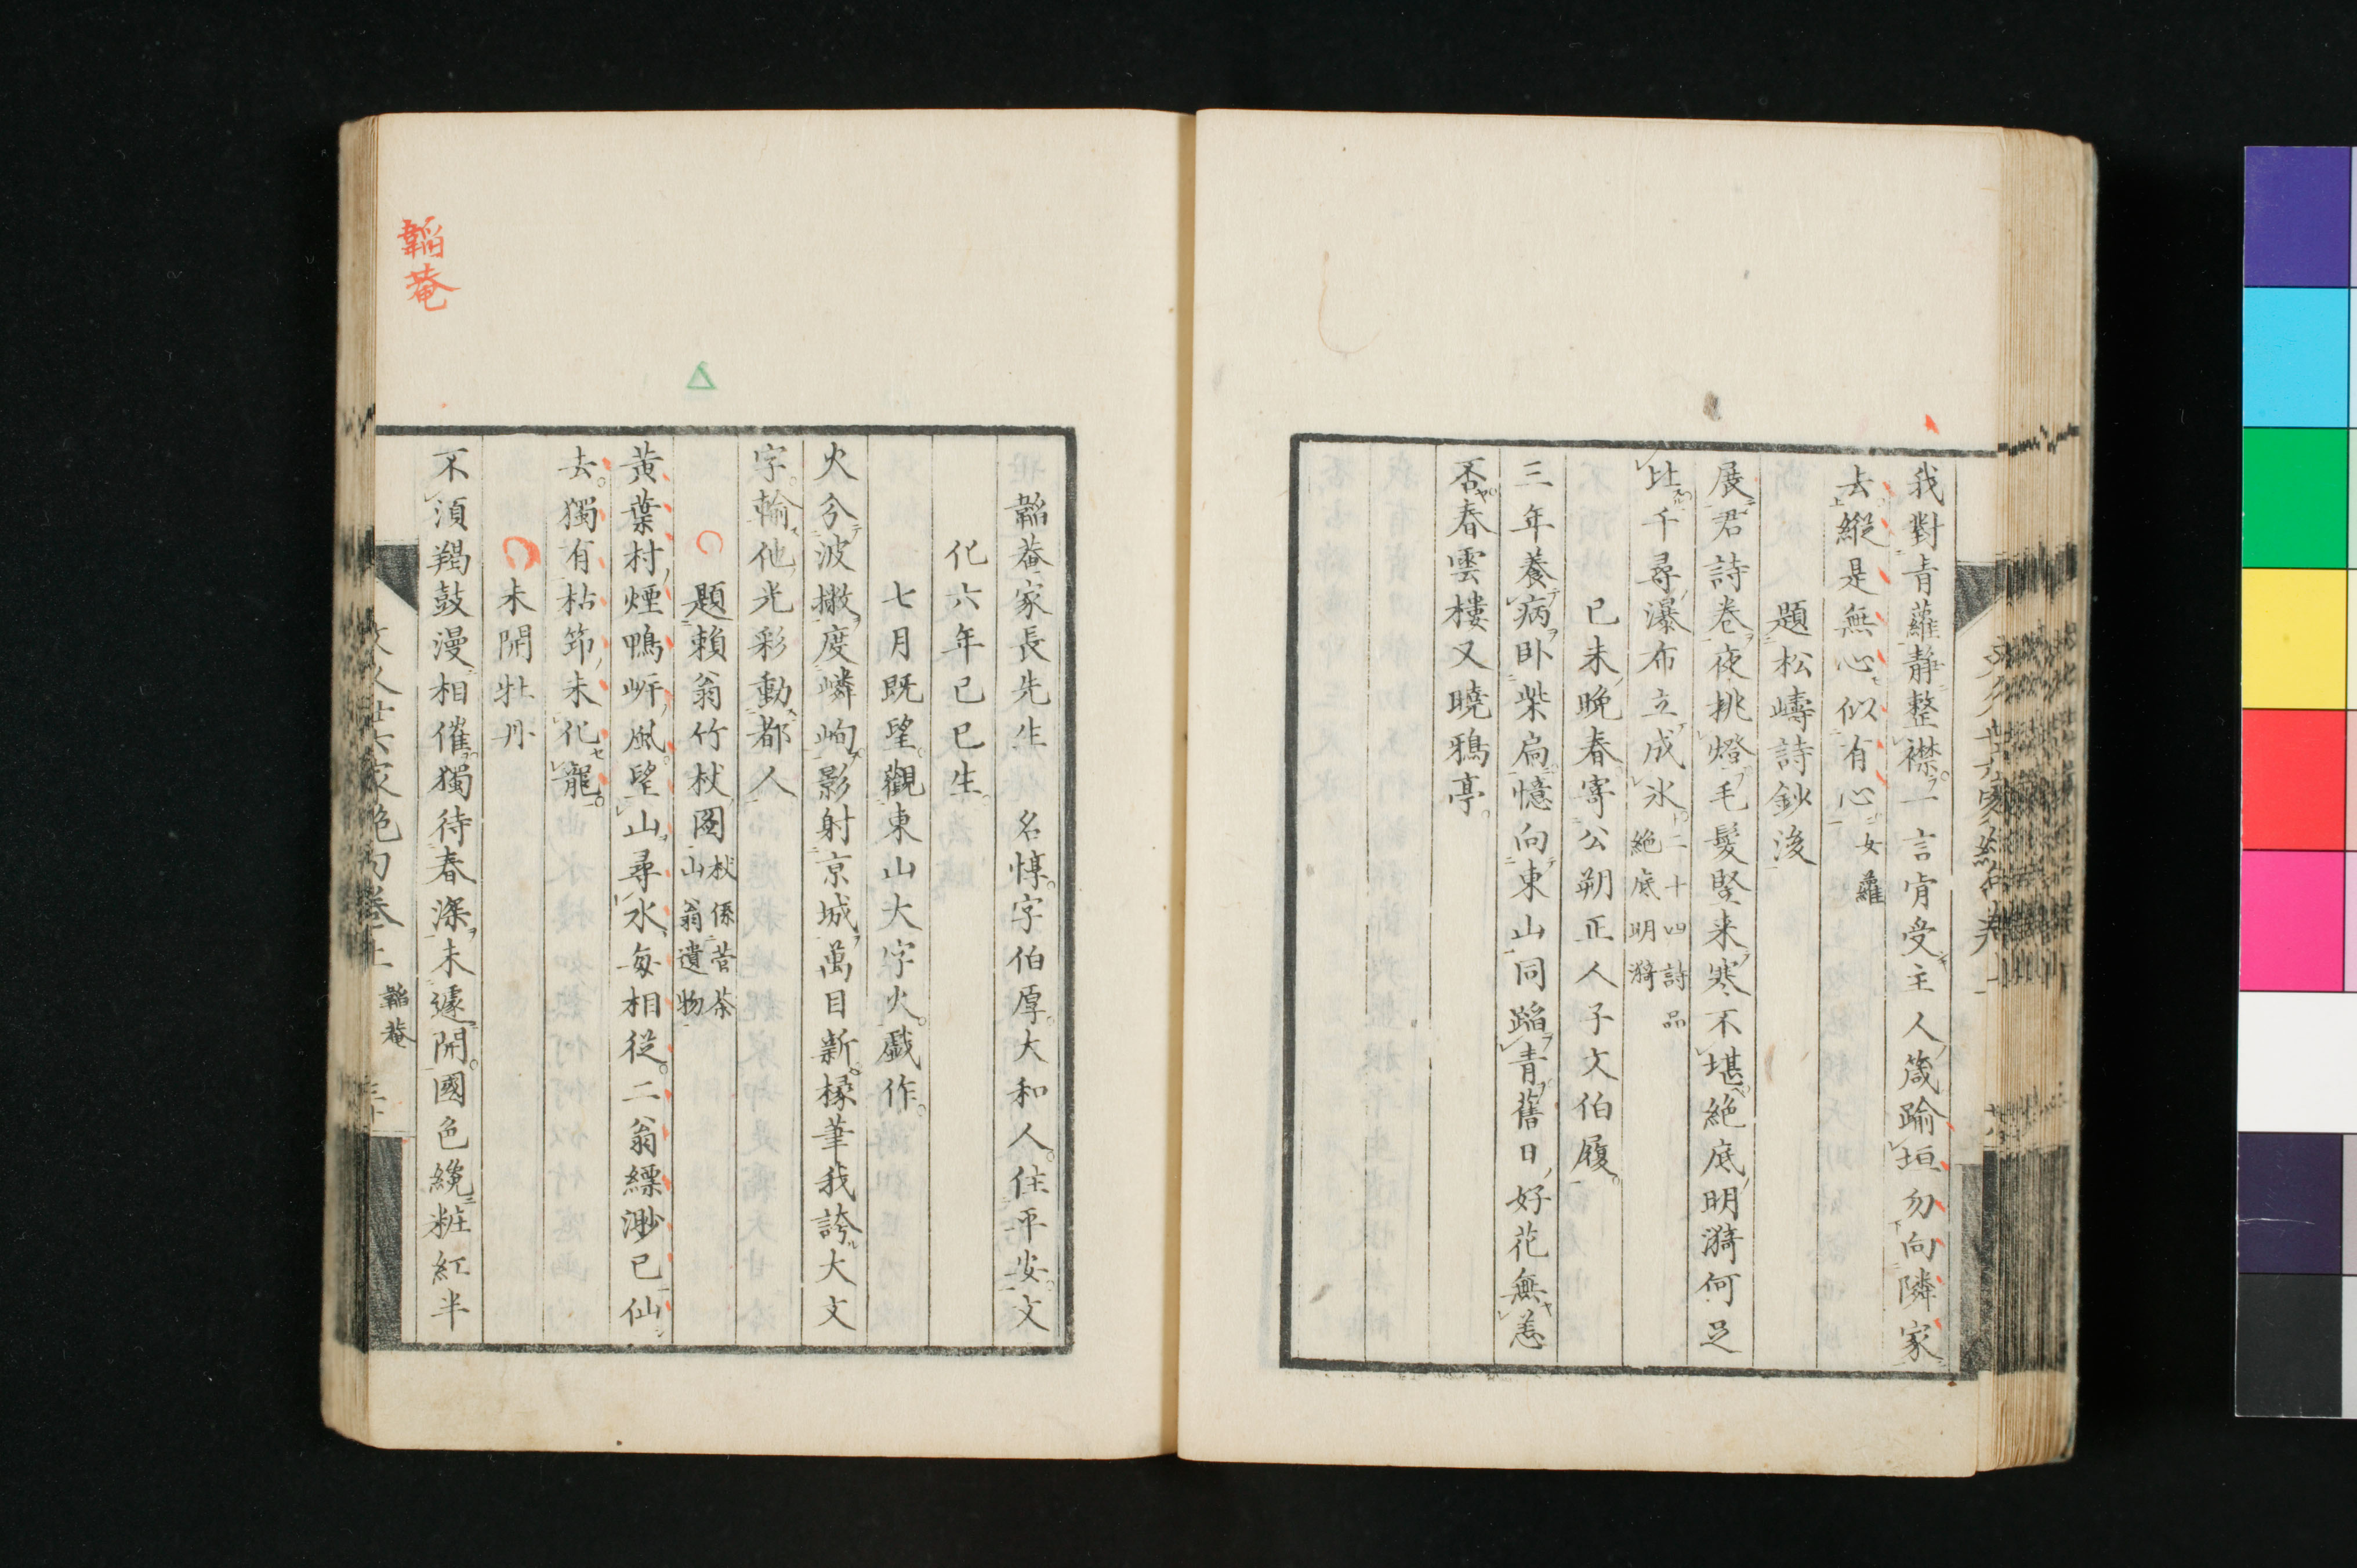 我對青蘿靜整襟一言肯受主人箴踰垣勿向隣家
去縱是無心似有心女蘿
題松嶹詩鈔後
展君詩卷夜挑燈毛髮竪来寒不堪絶底明漪何足
比千尋瀑布立成氷二十四詩品
絶底明漪
己未晩春寄公朔正人子文伯履
三年養病卧柴扃憶向東山同蹈青舊日好花無恙
否春雲樓又曉鴉亭
韜菴家長先生 名惇字伯厚大和人住平安文
化六年己巳生
七月既望觀東山大字火戯作
火兮波撇度嶙峋影射京城萬目新椽筆我誇大文
字輸他光彩動都人
題頼翁竹杖圖杖係菅茶
山翁遺物
黄葉村煙鴨岼風望山尋水每相従二翁縹渺已仙
去獨有枯笻未化龍
未開牡丹
不須羯鼓漫相催獨待春深未遽開國色纔粧紅半
韜菴
韜菴